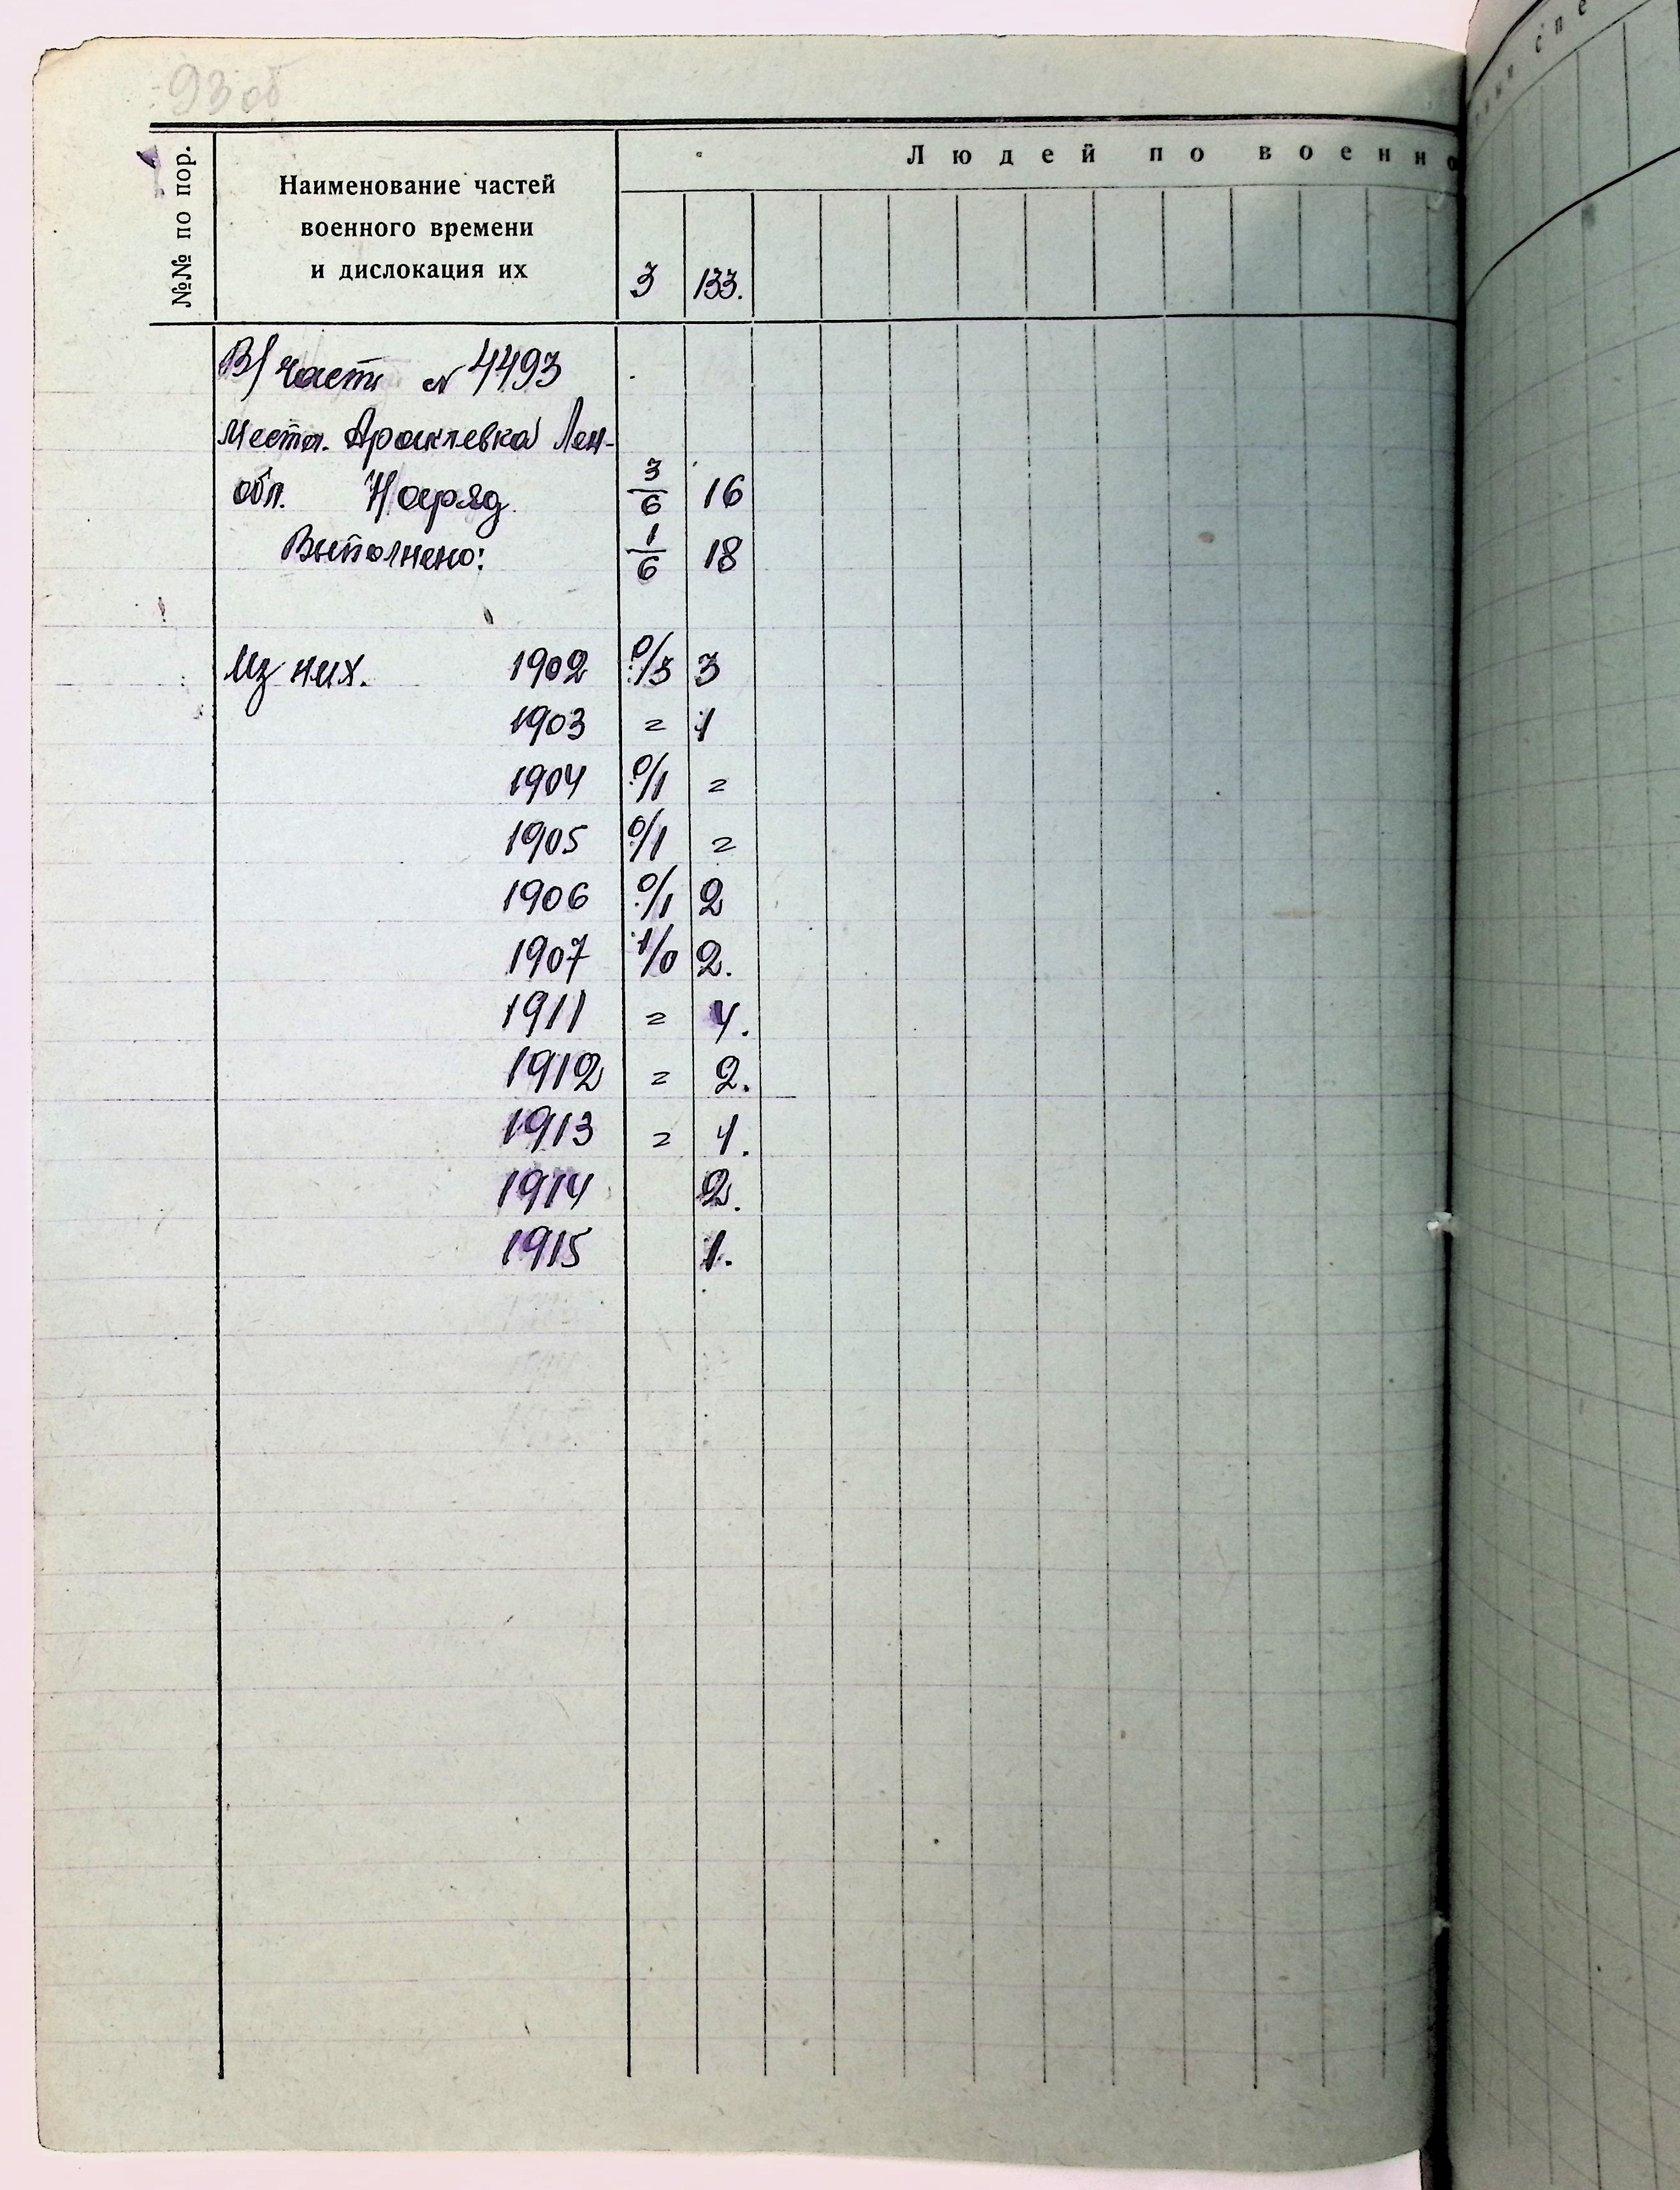 93 об
№№ по пор.
Наименование частей
военного времени
и дислокация их
Людей по военно
3 133.
В/часть № 4493
Местн. Аракчевка Лен-
обл. Наряд 3/6 16
Выполнено: 1/6 18
Из них. 1902 0/3 3
1903 = 1
1904 0/1 =
1905 0/1 =
1906 0/1 2
1907 1/0 2.
1911 = 4.
1912 = 2.
1913 = 1.
1914 2.
1915 1.